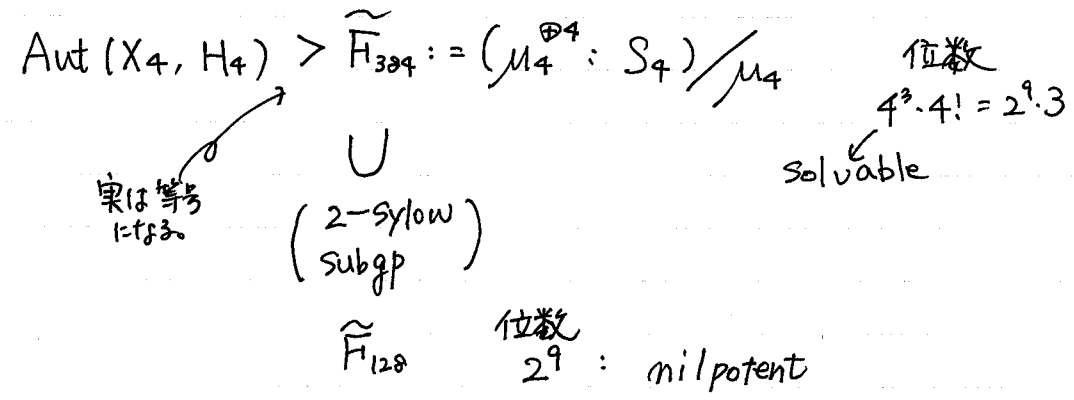 Aut (X₄, H₄) > F̃₃₈₄ := (μ₄^{⊕4} : S₄) / μ₄
位数
4³·4! = 2⁹·3
solvable
実は等号
になる。
∪
( 2-sylow
subgp )
F̃₁₂₈
位数
2⁹ : nilpotent